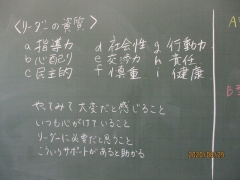 <リーダーの資質>
a 指導力 d 社会性 g 行動力
b 心配り e 交渉力 h 責任
c 民主的 f 慎重 i 健康
やってみて大変だと感じること
いつも心がけていること
リーダーに必要だと思うこと
こういうサポートがあると助かる
A
B